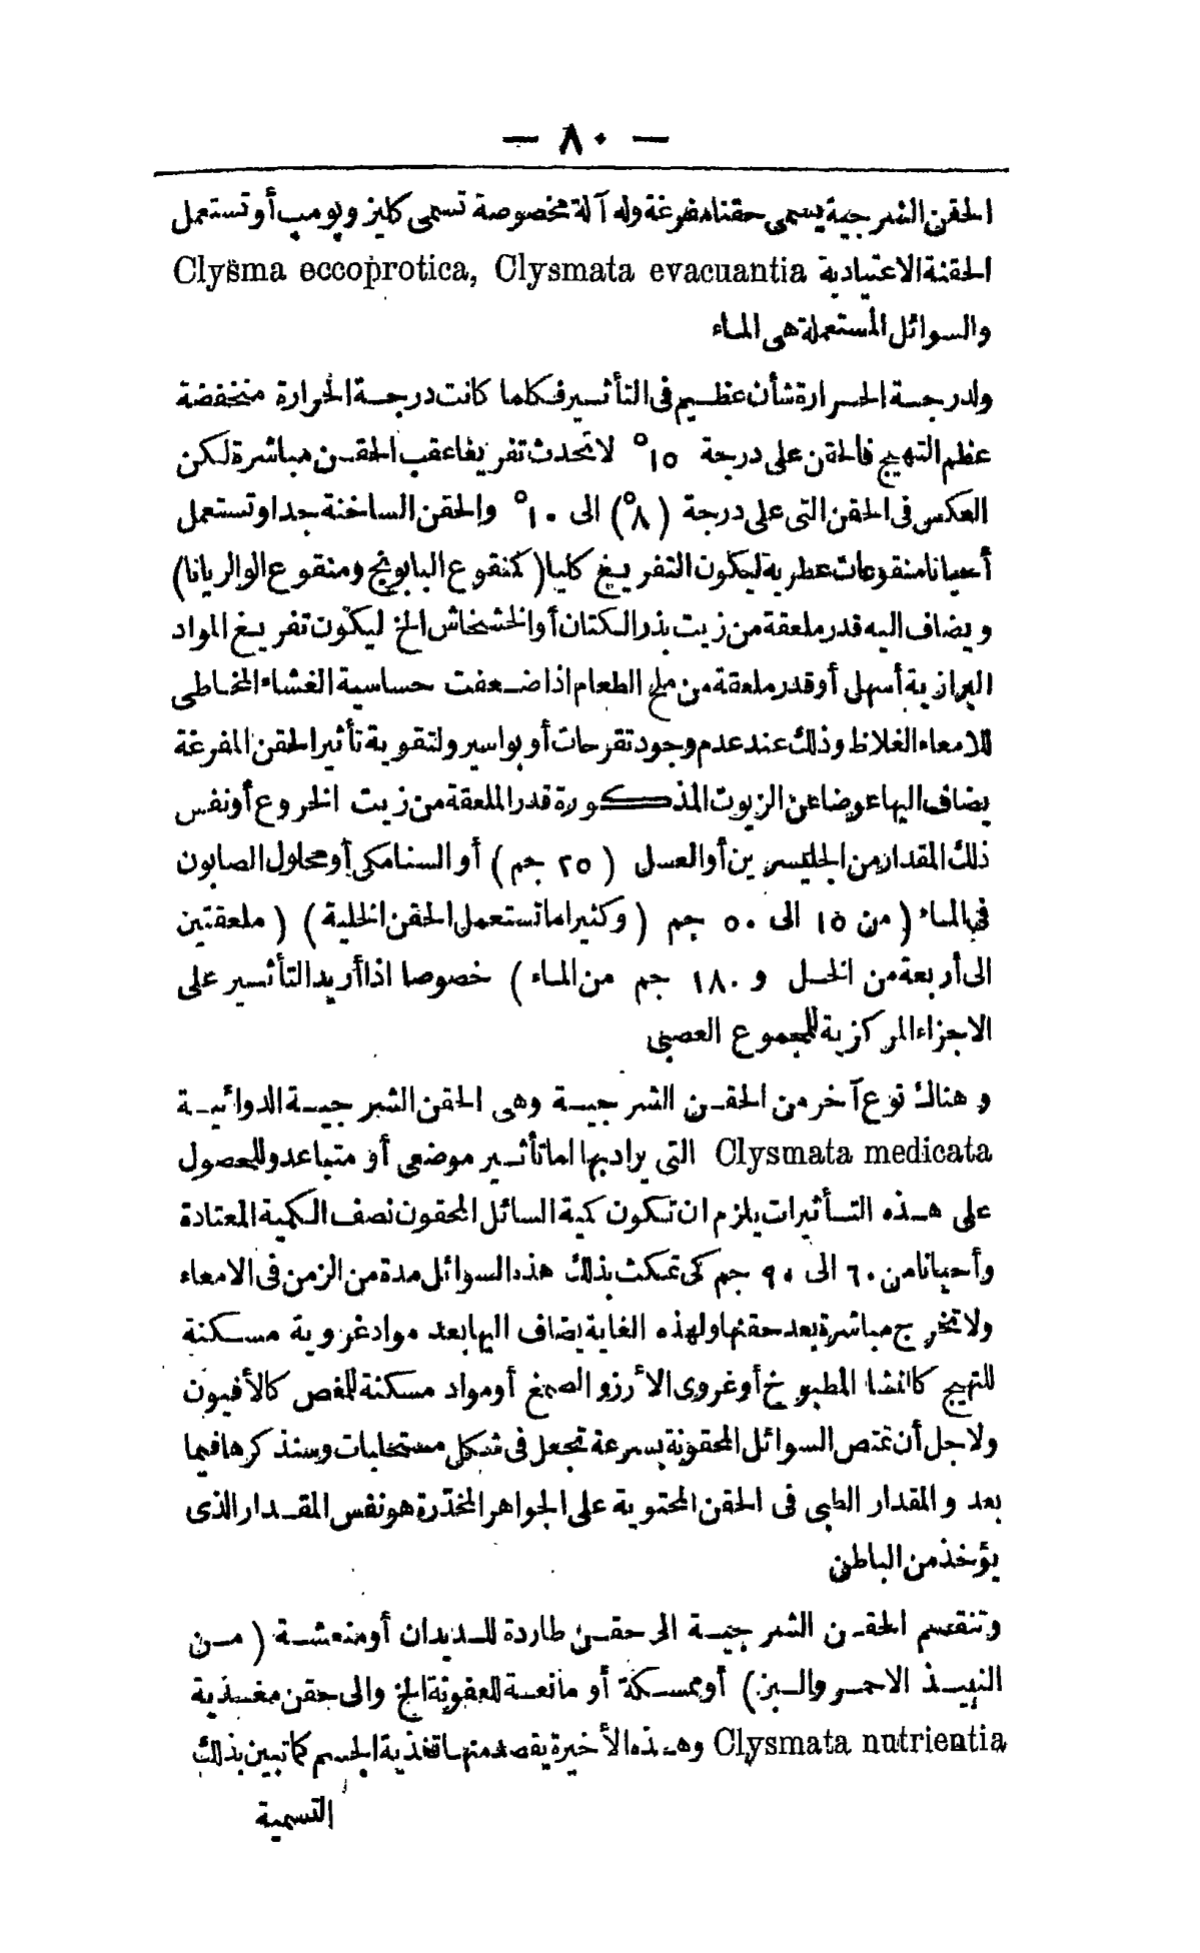 — ٨٠ —
الحقن الشرجية يسمى حقنا مفرغة وله آلة مخصوصة تسمى كليزوپومپ أو تستعمل
الحقنة الاعتيادية Clysma eccoprotica, Clysmata evacuantia
والسوائل المستعملة هى الماء
ولدرجة الحرارة شأن عظيم فى التأثير فكلما كانت درجة الحرارة منخفضة
عظم التهيج فالحقن على درجة ١٥° لا تحدث تفريغا عقب الحقن مباشرة لكن
العكس فى الحقن التى على درجة (٨°) الى ١٠° والحقن الساخنة جدا وتستعمل
أحيانا منقوعات عطرية ليكون التفريغ كليا (كنقوع البابونج ومنقوع الوالريانا)
ويضاف اليه قدر ملعقة من زيت بذر الكتان أو الخشخاش الخ ليكون تفريغ المواد
البرازية أسهل أو قدر ملعقة من ملح الطعام اذا ضعفت حساسية الغشاء المخاطى
للامعاء الغلاظ وذلك عند عدم وجود تقرحات أو بواسير ولتقوية تأثير الحقن المفرغة
يضاف اليها عوضا عن الزيوت المذكورة قدر الملعقة من زيت الخروع أو نفس
ذلك المقدار من الجليسرين أو العسل (٢٥ جم) أو السنامكى أو محلول الصابون
فى الماء (من ١٥ الى ٥٠ جم (وكثيرا ما تستعمل الحقن الخلية) (ملعقتين
الى أربعة من الخل و ١٨٠ جم من الماء) خصوصا اذا أريد التأثير على
الاجزاء المركزية للمجموع العصبى
وهناك نوع آخر من الحقن الشرجية وهى الحقن الشرجية الدوائية
Clysmata medicata التى يراد بها اما تأثير موضعى أو متباعد وللحصول
على هذه التأثيرات يلزم ان تكون كمية السائل المحقون نصف الكمية المعتادة
وأحيانا من ٦٠ الى ٩٠ جم كى تمكث بذلك هذه السوائل مدة من الزمن فى الامعاء
ولا تخرج مباشرة بعد حقنها ولهذه الغاية يضاف اليها بعد مواد غروية مسكنة
للتهيج كالنشا المطبوخ أو غروى الأرز والصمغ أو مواد مسكنة للمغص كالأفيون
ولاجل أن تمتص السوائل المحقونة بسرعة تجعل فى شكل مستحلبات وسنذكرها فيما
بعد والمقدار الطبى فى الحقن المحتوية على الجواهر المخدّرة هو نفس المقدار الذى
يؤخذ من الباطن
وتنقسم الحقن الشرجية الى حقن طاردة للديدان أو منعشة (من
النبيذ الاحمر والبن) أو ممسكة أو مانعة للعفونة الخ والى حقن مغذية
Clysmata nutrientia وهذه الأخيرة يقصد منها تغذية الجسم كما تبين بذلك
التسمية